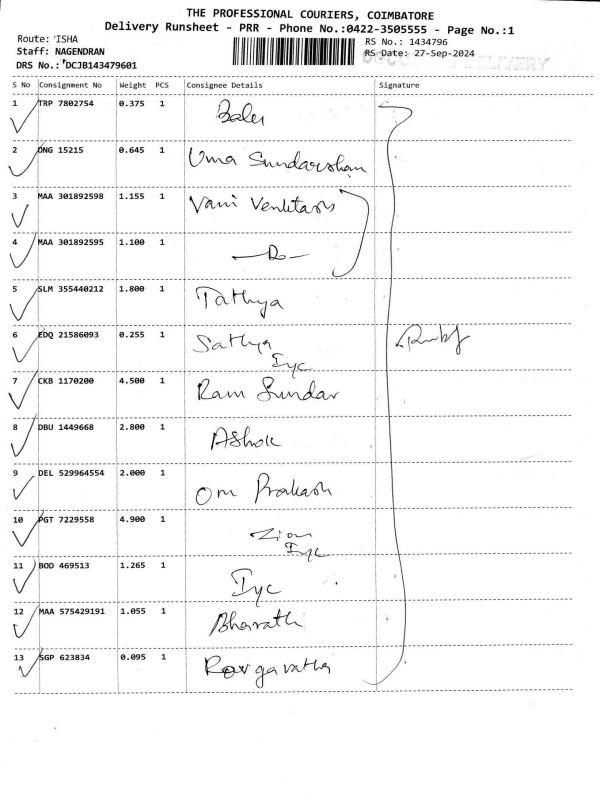 THE PROFESSIONAL COURIERS, COIMBATORE
Delivery Runsheet - PRR - Phone No.:0422-3505555 - Page No.:1
Route: 'ISHA
RS No.: 1434796
Staff: NAGENDRAN
RS Date: 27-Sep-2024
DELIVERY
DRS No.: DCJB143479601
S No Consignment No Weight PCS Consignee Details Signature
1 TRP 7802754 0.375 1
2 ONG 15215 0.645 1 Uma Sundarsham
3 MAA 301892598 1.155 1 Vani
4 MAA 301892595 1.100 1 —Do—
5 SLM 355440212 1.800 1 Tathya
6 EDQ 21586093 0.255 1 Sathya
Iyc
7 CKB 1170200 4.500 1 Ram Sundar
8 DBU 1449668 2.800 1 Ashok
9 DEL 529964554 2.000 1 Om Prakash
10 PGT 7229558 4.900 1 Zion
Iyc
11 BOD 469513 1.265 1 Iyc
12 MAA 575429191 1.055 1 Bharath
13 SGP 623834 0.095 1